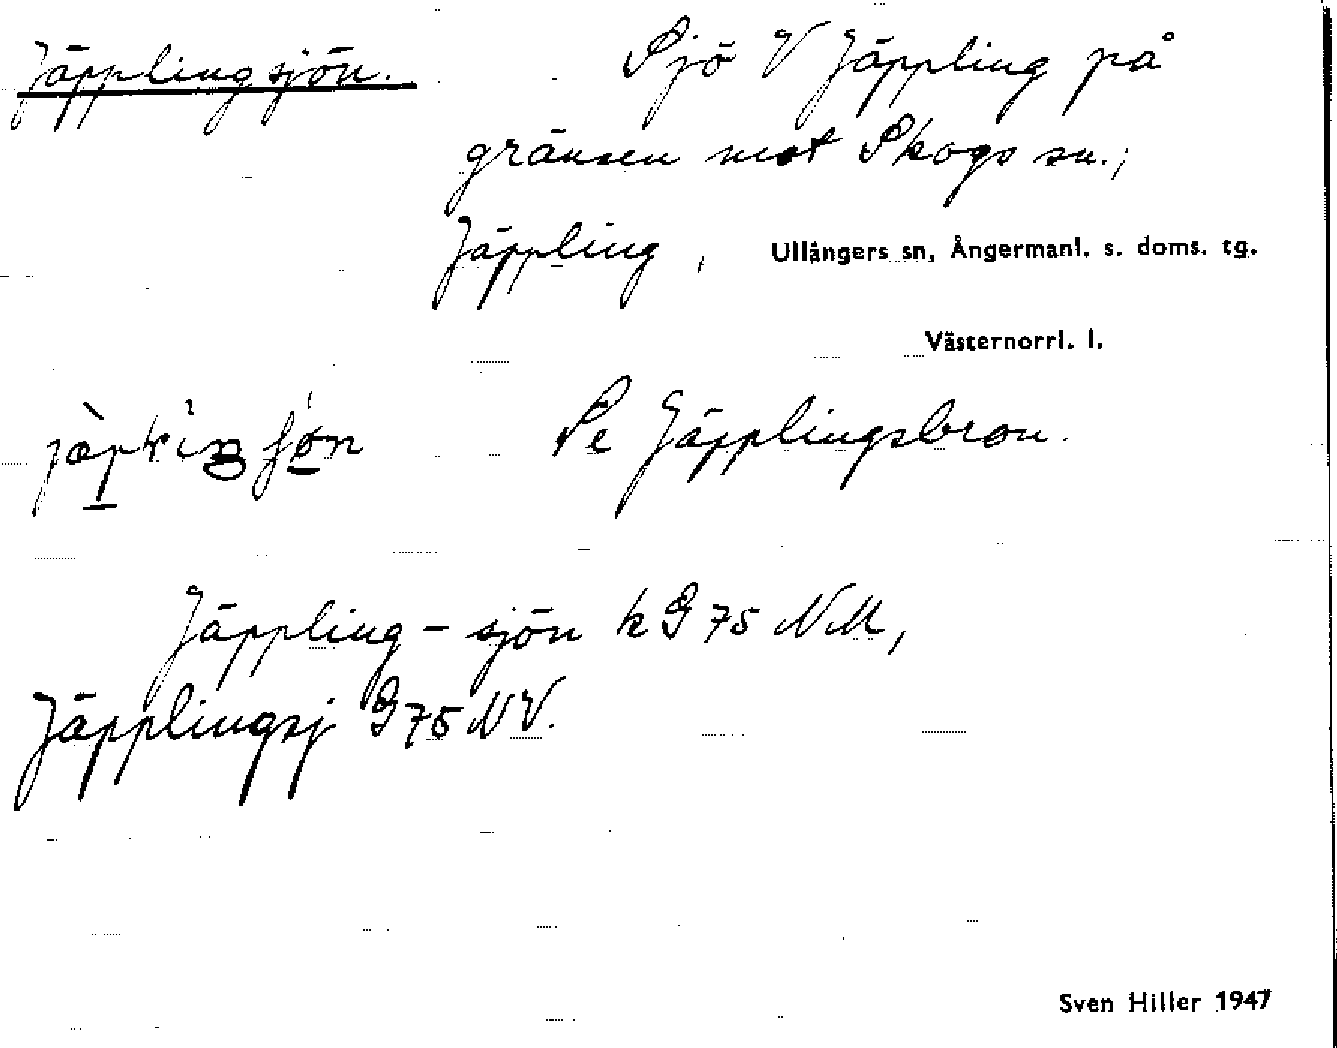 Jäpplingsjön. Sjö V Jäppling på
gränsen mot Skogs sn.;
Jäppling, Ullångers sn, Ångermanl. s. doms. tg.
Västernorrl. l.
Se Jäpplingsbron.
Jäppling-sjön k G 75 NM,
Jäpplingsj G 75 NV.
Sven Hiller 1947